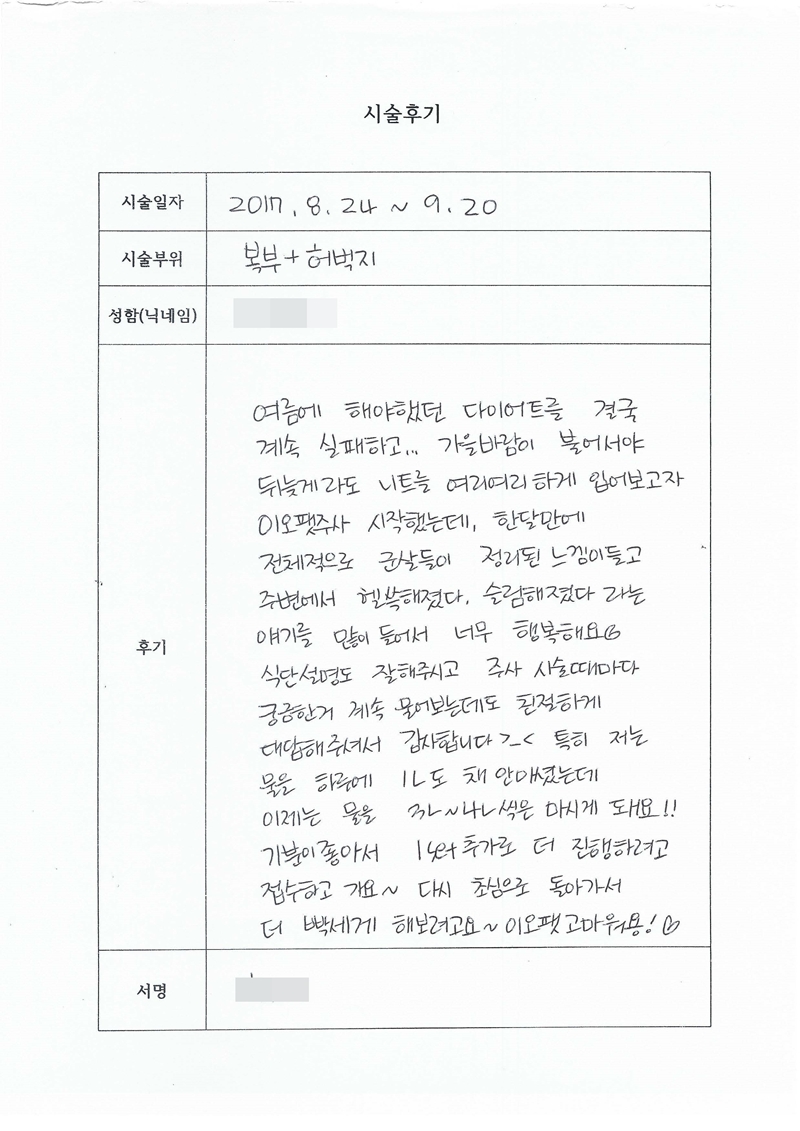 시술후기
시술일자 2017. 8. 24 ~ 9. 20
시술부위 복부 + 허벅지
성함(닉네임)
후기
여름에 해야했던 다이어트를 결국
계속 실패하고... 가을바람이 불어서야
뒤늦게라도 니트를 여리여리하게 입어보고자
이오팻주사 시작했는데, 한달만에
전체적으로 군살들이 정리된 느낌이들고
주변에서 헬쓱해졌다, 슬림해졌다 라는
얘기를 많이 들어서 너무 행복해요♡
식단설명도 잘해주시고 주사 시술때마다
궁금한거 계속 물어보는데도 친절하게
대답해주셔서 감사합니다 >_< 특히 저는
물을 하루에 1L도 채 안마셨는데
이제는 물을 3L~4L씩은 마시게 돼요!!
기분이좋아서 1set 추가로 더 진행하려고
접수하고 가요~ 다시 초심으로 돌아가서
더 빡세게 해보려고요~ 이오팻 고마워용! ♡
서명